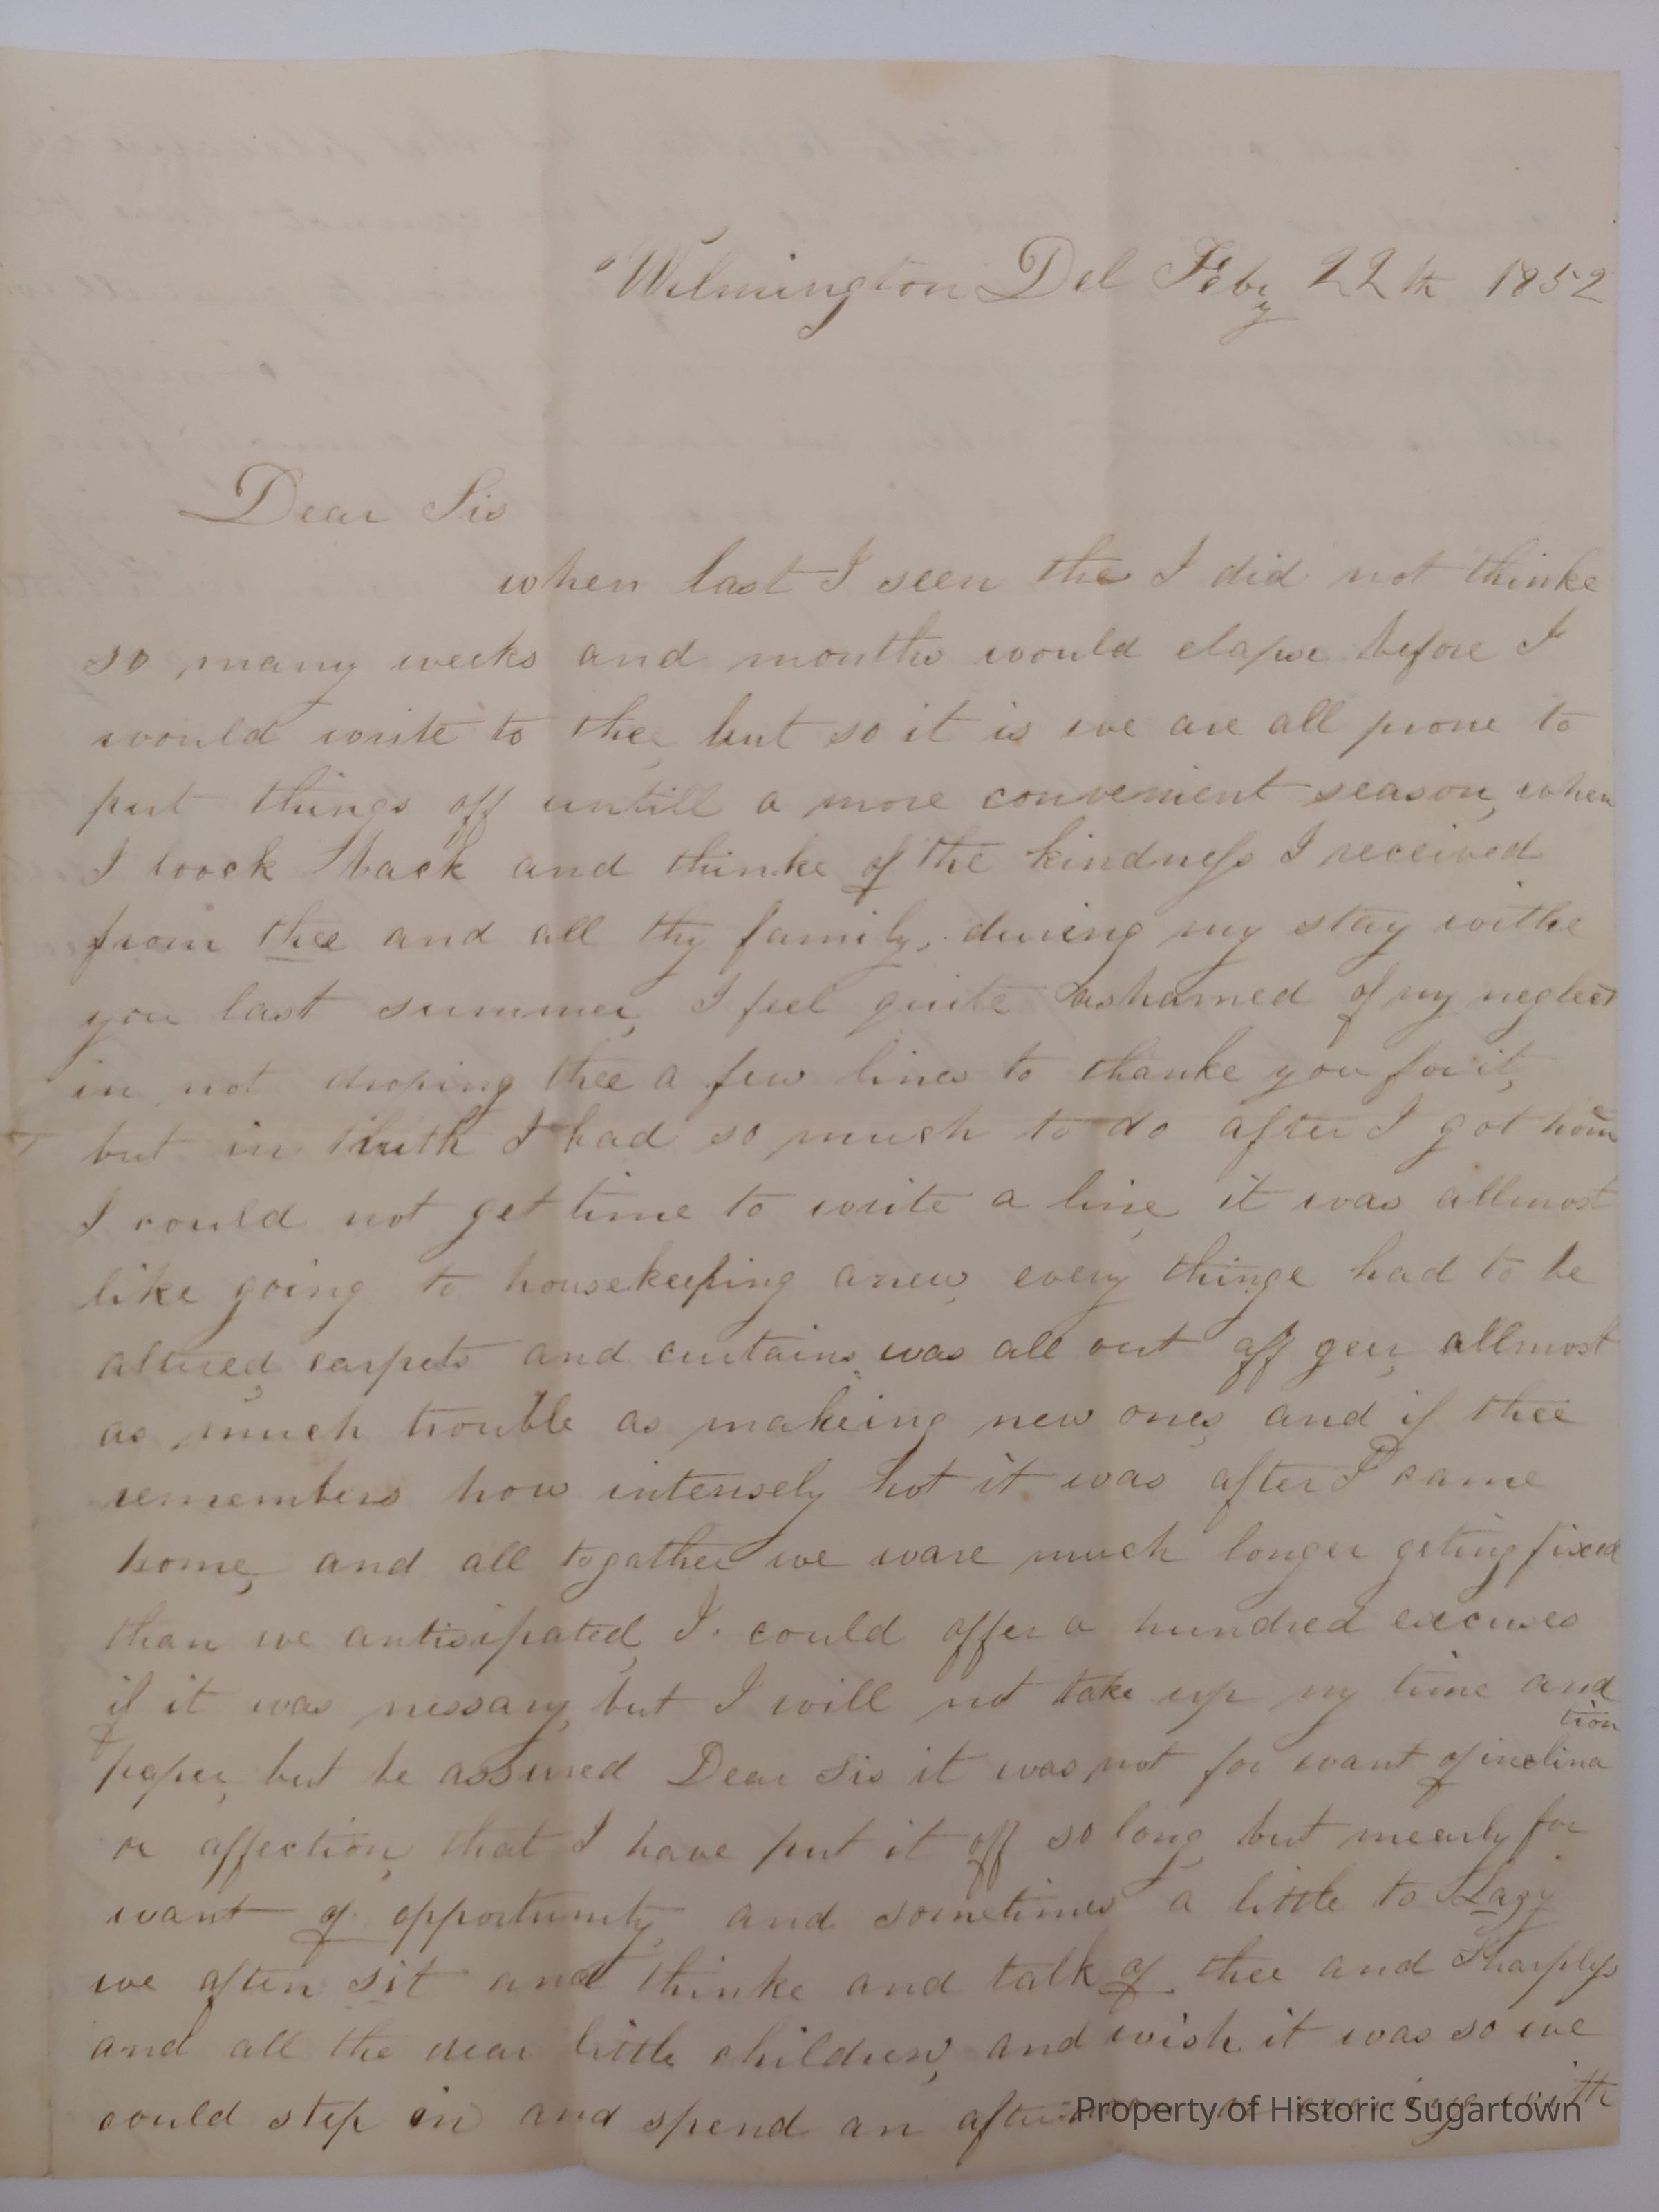 Wilmington Del Feby 22th 1852
Dear Sis
when last I seen the I did not thinke
so many weeks and months would elapse before I
would write to thee, but so it is we are all prone to
put things off untill a more convenient season, when
I loock back and thinke of the kindness I received
from thee and all thy family, dureing my stay withe
you last summer, I feel quite ashamed of my neglect
in not droping thee a few lines to thanke you for it,
but in truth I had so much to do after I got home
I could not get time to write a line, it was allmost
like going to housekeeping anew, every thinge had to be
altured, carpets and curtains, was all out off geer, allmost
as much trouble as makeing new ones, and if thee
remembers how intensely hot it was after I came
home, and all togather we ware much longer geting fixed
than we antisipated, I could offer a hundred excuses
if it was nessary, but I will not take up my time and
paper, but be assured Dear Sis it was not for want of inclination
or affection, that I have put it off so long, but mearly for
want of opportunity, and sometimes a little to Lazy
we often sit and thinke and talk of thee and Sharpless
and all the dear little children, and wish it was so we
could step in and spend an afternoon or evening with
Property of Historic Sugartown